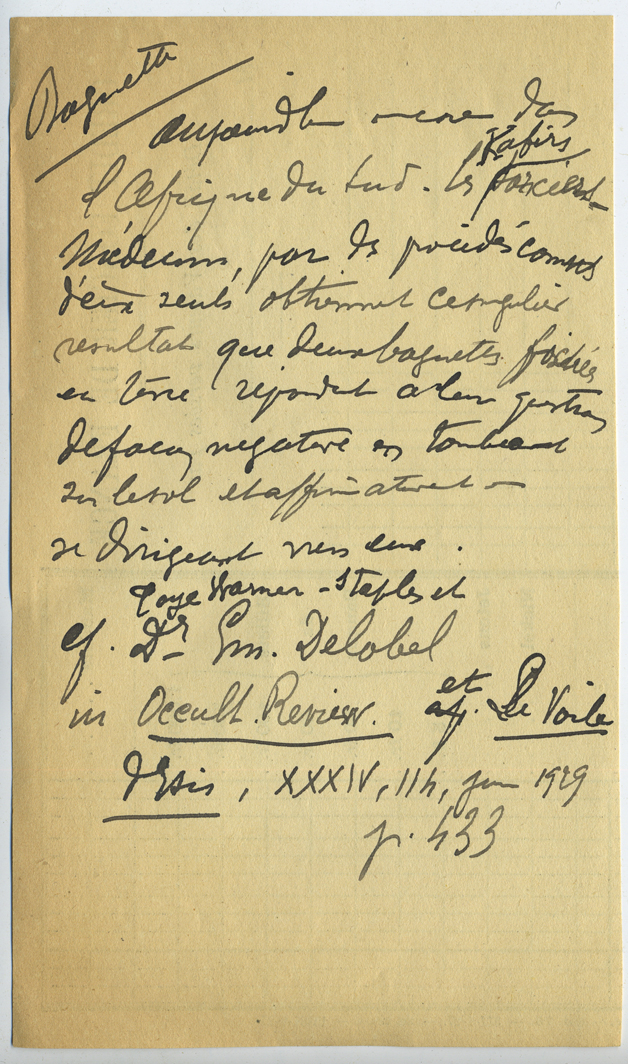 Baguette
aujourd'hui encore dans
Kafirs
l'Afrique du Sud. les sorciers-
Médecins, par des procédés connus
d'eux seuls obtiennent ce singulier
resultat que deux baguettes fichées
en terre répondent à leur question
de façon negative en tombant
sur le sol et affirmativent en
se dirigeant vers eux.
Warner-Staples et
cf. Dr Em. Delobel
in Occult. Review. et
cf. Le Voile
d'Isis, XXXIV, 114, juin 1929
p. 433